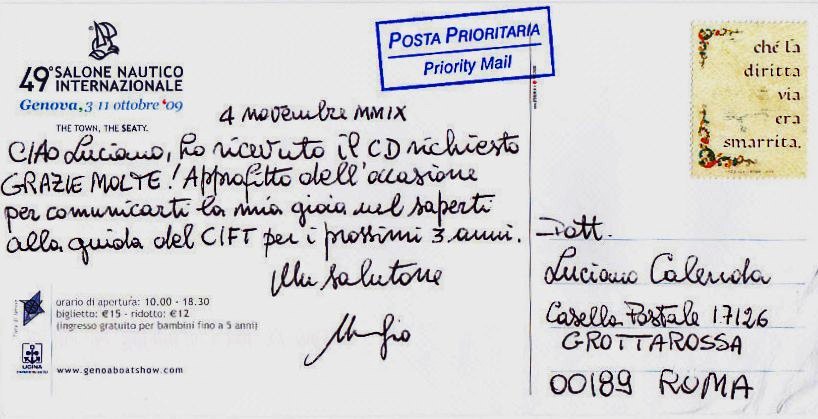 49° SALONE NAUTICO
INTERNAZIONALE
Genova, 3 11 ottobre '09
THE TOWN, THE SEATY.
POSTA PRIORITARIA
Priority Mail
ché la
diritta
via
era
smarrita.
4 novembre MMIX
CIAO Luciano, ho ricevuto il CD richiesto
GRAZIE MOLTE! Approfitto dell'occasione
per comunicarti la mia gioia nel saperti
alla guida del CIFT per i prossimi 3 anni.
Un salutone
Dott.
Luciano Calenda
Casella Postale 17126
GROTTAROSSA
00189 ROMA
orario di apertura: 10.00 - 18.30
biglietto: €15 - ridotto: €12
(ingresso gratuito per bambini fino a 5 anni)
UCINA
www.genoaboatshow.com